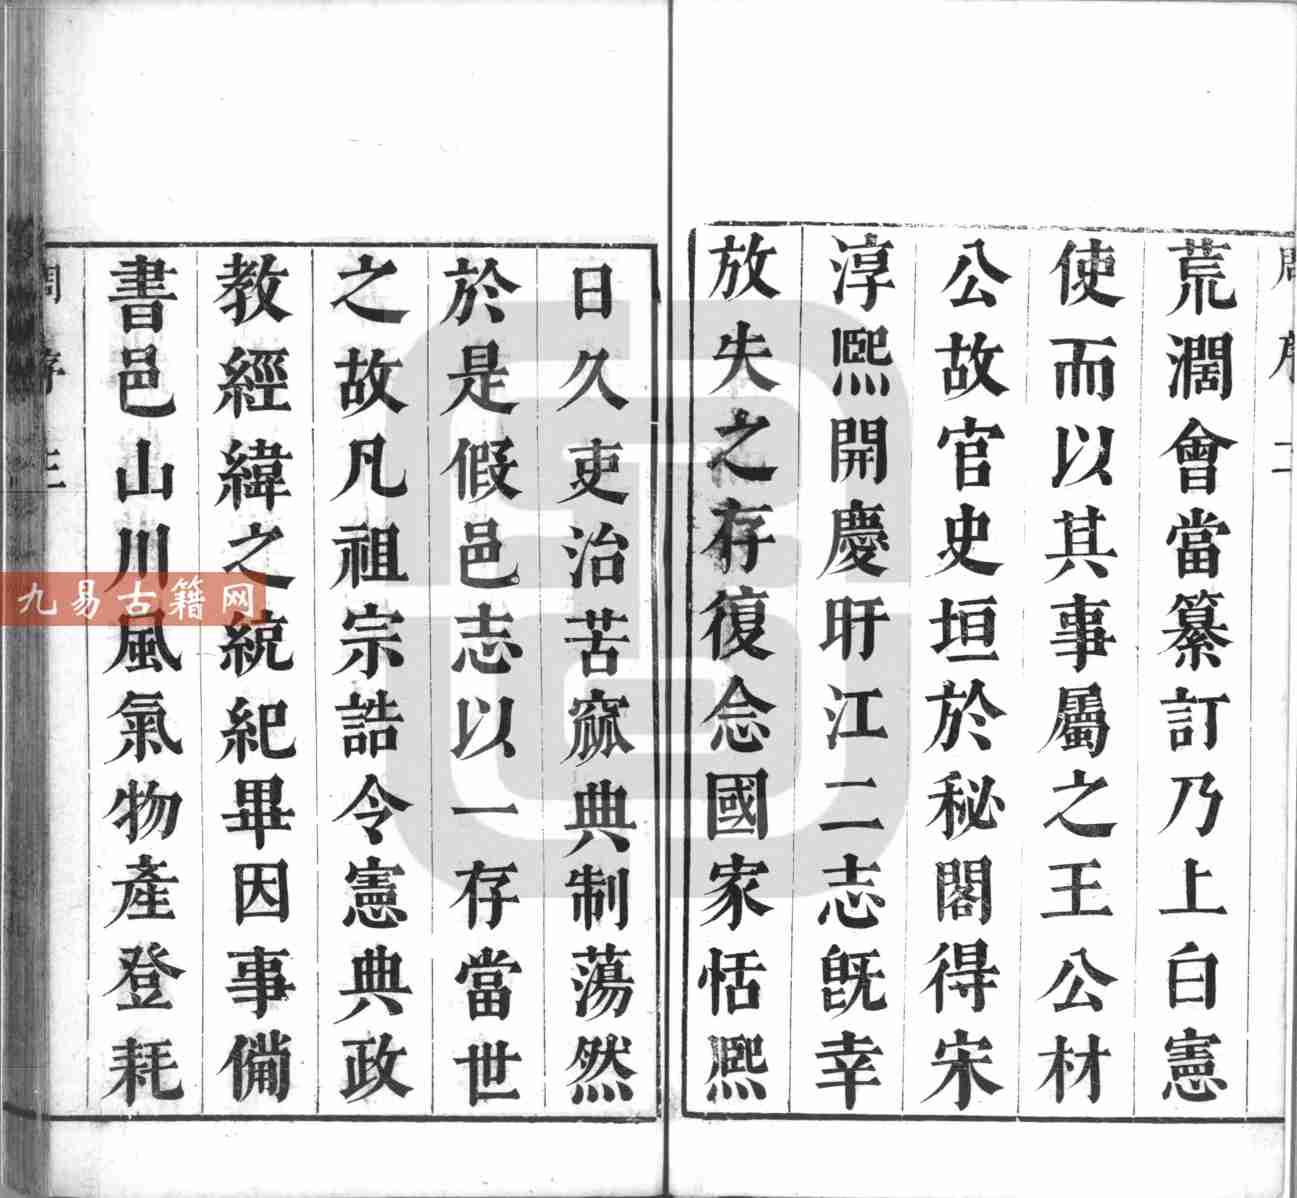 荒濶會當纂訂乃上白憲
使而以其事屬之王公材
公故官史垣於秘閣得宋
淳熙開慶盱江二志旣幸
放失之存復念國家恬熙
日久吏治苦窳典制蕩然
於是假邑志以一存當世
之故凡祖宗誥令憲典政
教經緯之統紀畢因事備
書邑山川風氣物產登耗
九易古籍网